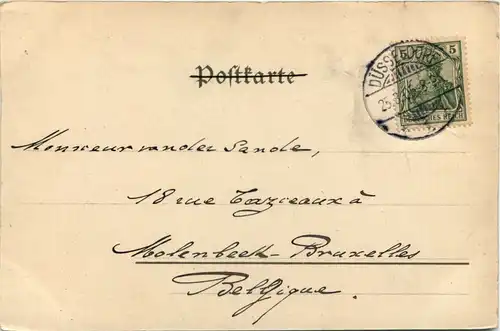 Postkarte
DÜSSELDORF
5 5
Monsieur van der Sande,
18 rue Cazieaux à
Molenbeek-Bruxelles
Belgique.